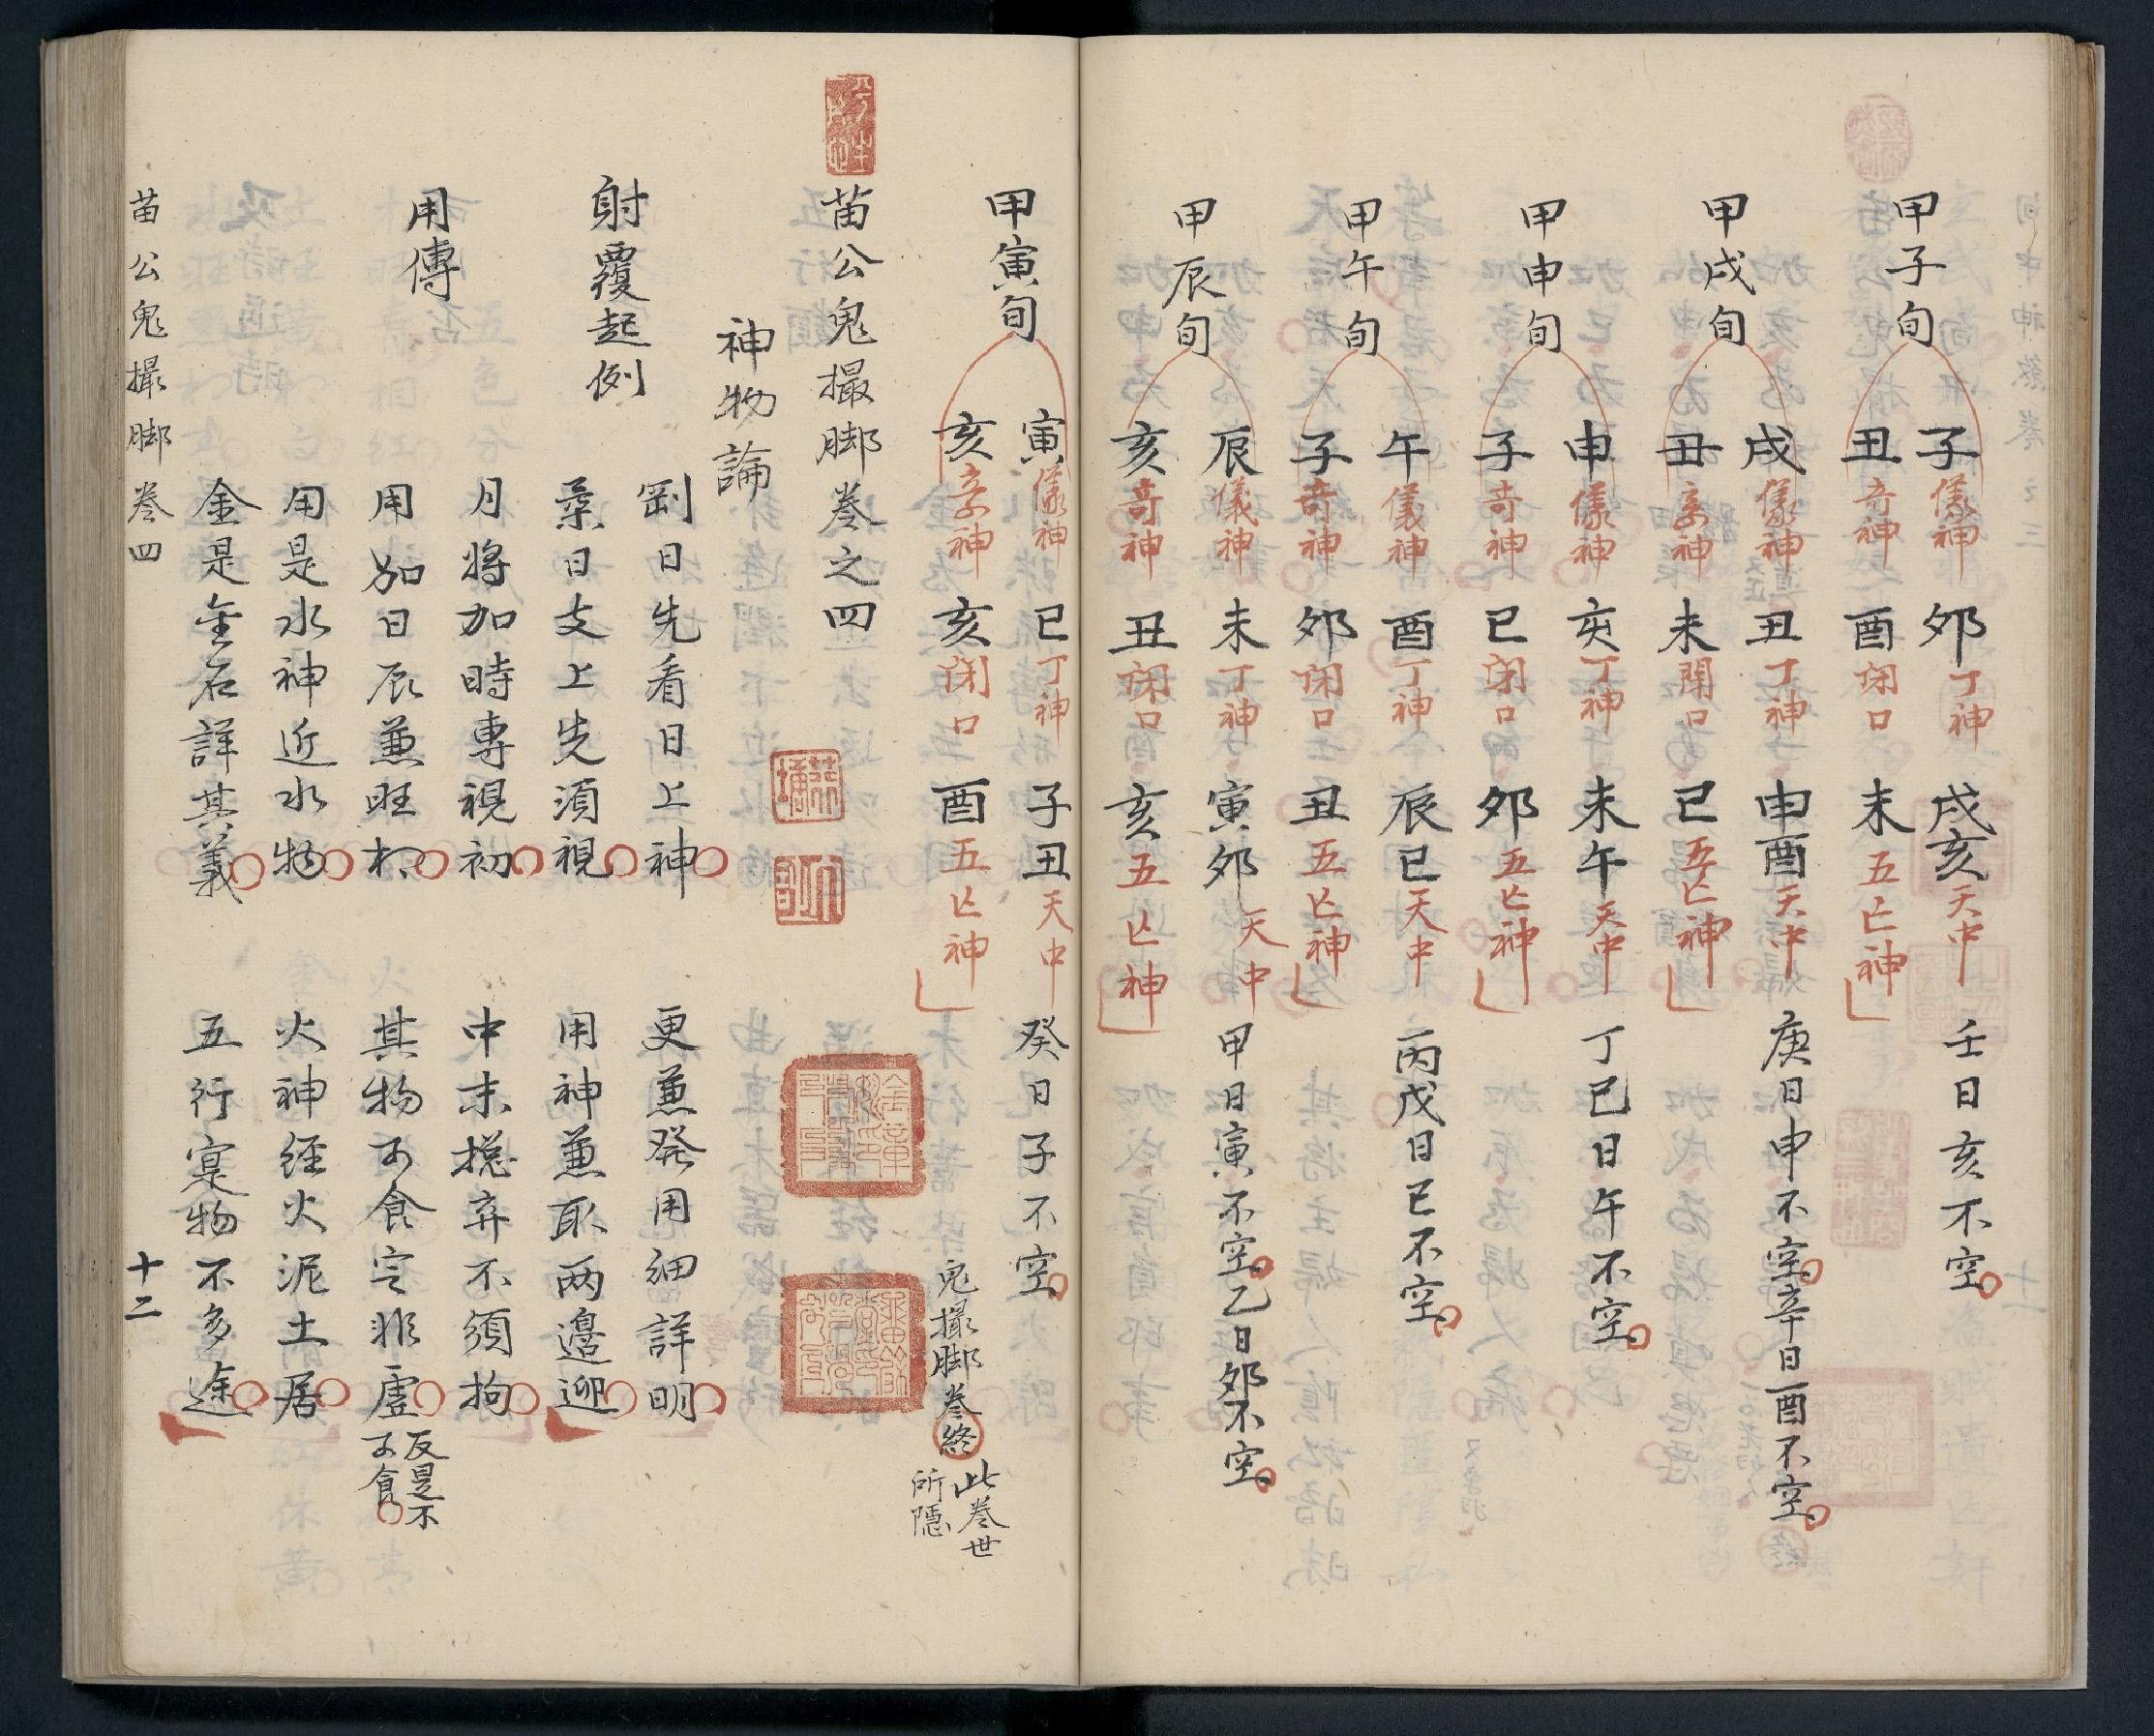 甲子旬
子儀神 夘丁神 戌亥天中 壬日亥不空
丑竒神 酉閉口 未五亡神
甲戌旬
戌儀神 丑丁神 申酉天中 庚日申不空辛日酉不空
丑竒神 未閉口 巳五亡神
甲申旬
申儀神 亥丁神 未午天中 丁巳日午不空
子竒神 巳閉口 夘五亡神
甲午旬
午儀神 酉丁神 辰巳天中 丙戊日巳不空
子竒神 夘閉口 丑五亡神
甲辰旬
辰儀神 未丁神 寅夘天中 甲日寅不空乙日夘不空
亥竒神 丑閉口 亥五亡神
甲寅旬
寅儀神 巳丁神 子丑天中 癸日子不空
亥竒神 亥閉口 酉五亡神
鬼撮脚卷終
此卷世
所隱
苗公鬼撮脚卷之四
神物論
射覆起例
剛日先看日上神 更兼發用細詳明
柔日支上先須視 用神兼取两邉迎
月將加時專視初 中末揔弃不須拘
用傳
用加日辰兼旺相 其物可食定非虛
反是不
可食
用是水神近水物 火神經火泥土居
金是金石詳其義 五行寔物不多途
苗公鬼撮脚 卷四 十二